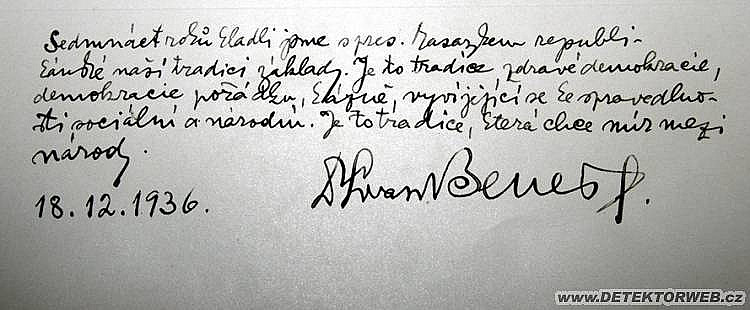 Sedmnáct roků kladli jsme s pres. Masarykem republi-
kánské naší tradici základy. Je to tradice zdravé demokracie,
demokracie pořádku, kázně, vyvíjející se ke spravedlno-
sti sociální a národní. Je to tradice, která chce mír mezi
národy.
18.12.1936.
Dr Edvard Beneš
www.DETEKTORWEB.cz